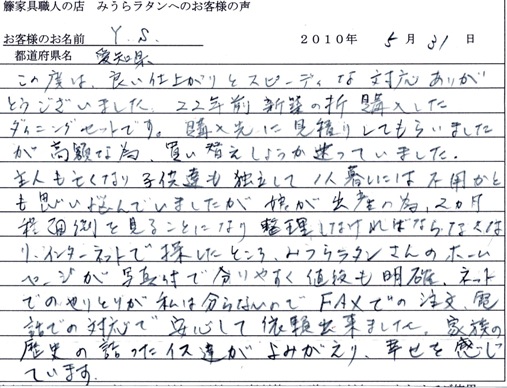 籐家具職人の店 みうらラタンへのお客様の声
お客様のお名前 Y.S. 2010年 5月31日
都道府県名 愛知県
この度は、良い仕上がりとスピーディな対応ありが
とうございました。22年前新築の折購入した
ダイニングセットです。購入先に見積りしてもらいました
が高額な為、買い替えしようか迷っていました。
主人も亡くなり子供達も独立して1人暮いには不用かと
も思い悩んでいましたが娘が出産の為、2カ月
程面倒を見ることになり整理しなければならなくな
り、インターネットで探したところ、みうらラタンさんのホーム
ページが写真付で分りやすく値段も明確、ネット
でのやりとりが私は分らないのでFAXでの注文、電
話での対応で安心して依頼出来ました。家族の
歴史の詰ったイス達がよみがえり、幸せを感じ
ています。